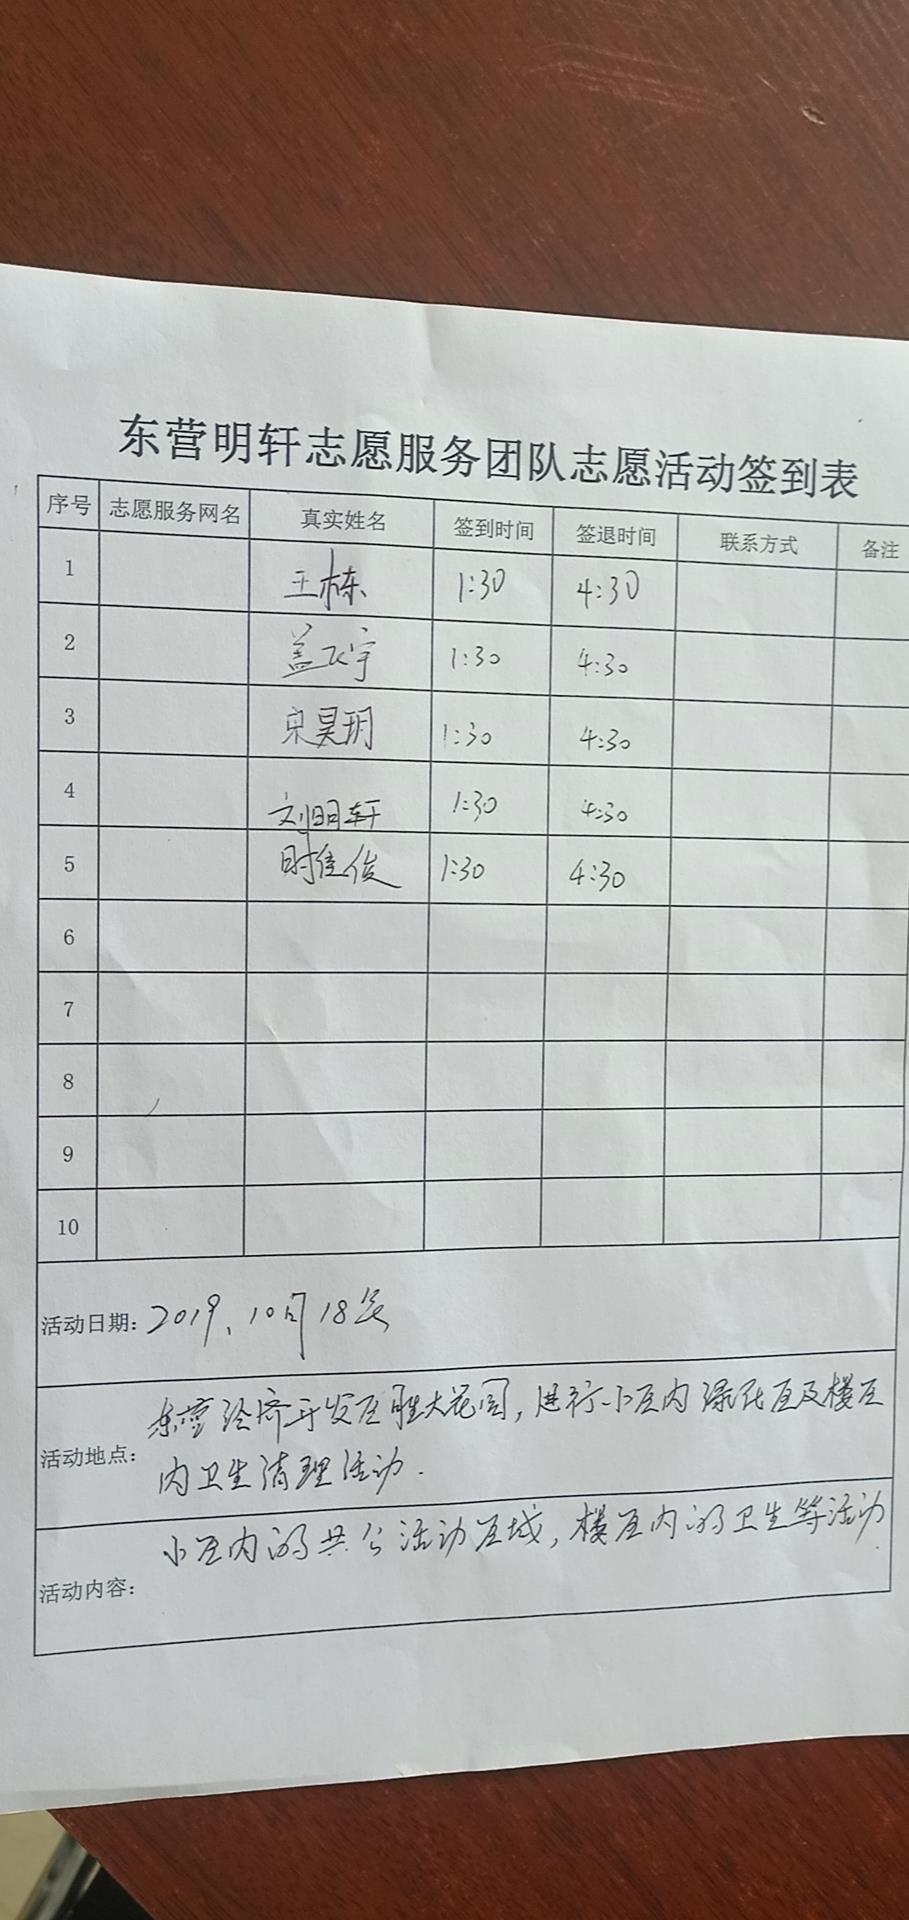 东营明轩志愿服务团队志愿活动签到表
序号 志愿服务网名 真实姓名 签到时间 签退时间 联系方式 备注
1 王栋 1:30 4:30
2 盖飞宇 1:30 4:30
3 宋昊玥 1:30 4:30
4 刘明轩 1:30 4:30
5 时佳俊 1:30 4:30
6
7
8
9
10
活动日期: 2019、10月18号
活动地点: 东营经济开发区胜大花园，进行小区内绿化区及楼区
内卫生清理活动.
活动内容: 小区内的公共活动区域，楼区内的卫生等活动